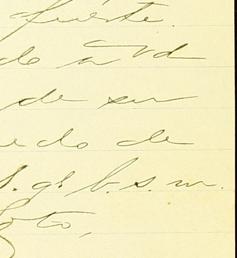 fuerte.
do a Vd
de su
do de
S. q. b. s. m.